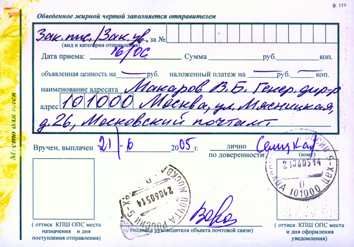 ф. 119
Обведенное жирной чертой заполняется отправителем
Зак. пис./Зак. ув. за №
(вид и категория отправления)
Дата приема: Сумма руб. коп.
объявленная ценность на руб. наложенный платеж на руб. коп.
наименование адресата Макаров В.Б. Генер. дир-р
адрес 101000 Москва, ул. Мясницкая,
д. 26, Московский почтамт
Вручен, выплачен 21 2005 г. лично
по доверенности
(оттиск КПШ ОПС места назначения и дня поступления отправления)
(подпись руководителя объекта почтовой связи)
(оттиск КПШ ОПС места назначения и дня оформления уведомления)
МОСКВА 101000